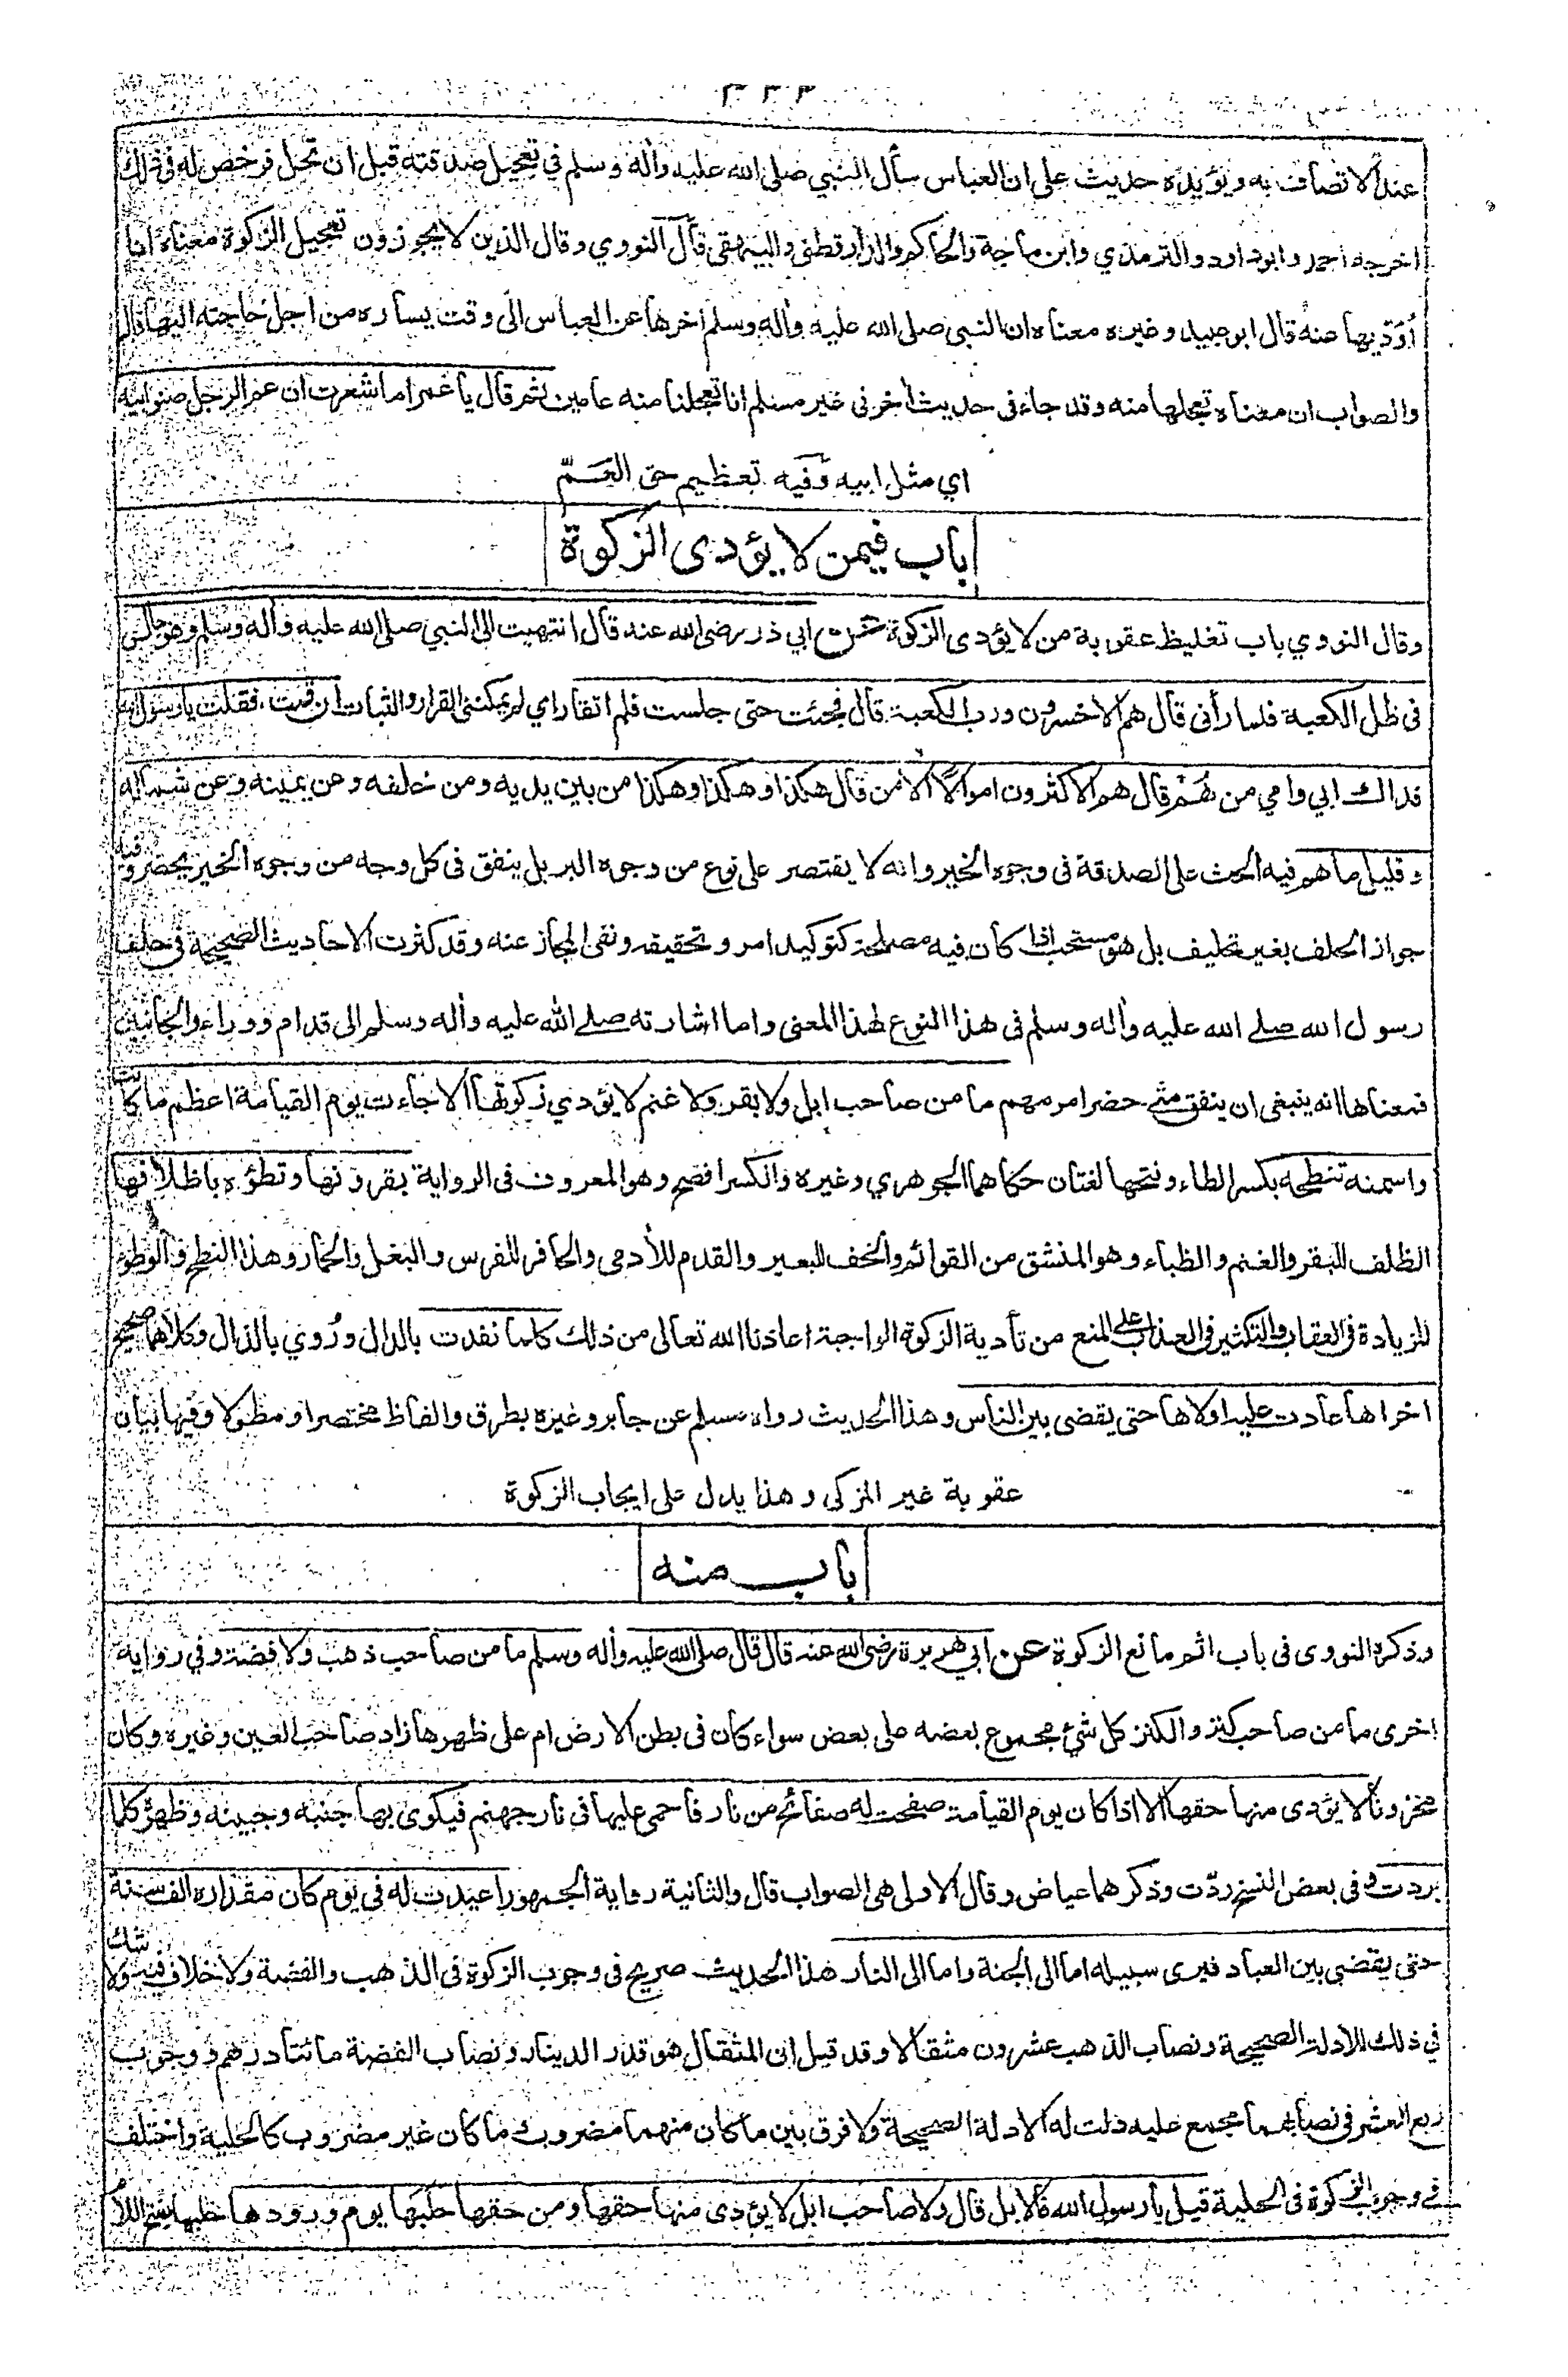 ٣٣٣
عند الاتصاف به ويؤيده حديث علي ان العباس سأل النبي صلى الله عليه وأله وسلم في تعجيل صدقته قبل ان تحل فرخص له في ذلك
اخرجه احمد وابوداود والترمذي وابن ماجة والحاكم والدارقطني والبيهقي قال النووي وقال الذين لا يجوزون تعجيل الزكوة معناه انا
أؤديها عنه قال ابوعبيد وغيره معناه ان النبي صلى الله عليه وأله وسلم اخرها عن العباس الى وقت يساره من اجل حاجته اليها قال
والصواب ان معناه تعجلها منه وقد جاء في حديث أخر في غير مسلم انا تعجلنا منه عامين ثم قال يا عمر اما شعرت ان عم الرجل صنو ابيه
اي مثل ابيه وفيه تعظيم حق العم
باب فيمن لا يؤدى الزكوة
وقال النووي باب تغليظ عقوبة من لا يؤدى الزكوة عن ابي ذر رضى الله عنه قال انتهيت الى النبي صلى الله عليه وأله وسلم وهو جالس
في ظل الكعبة فلما رأني قال هم الاخسرون ورب الكعبة قال فجئت حتى جلست فلم اتقار اي لم يمكنني القرار والثبات ان قمت فقلت يا رسول الله
فداك ابي وامي من هم قال هم الاكثرون اموالا الا من قال هكذا وهكذا وهكذا من بين يديه ومن خلفه وعن يمينه وعن شماله
وقليل ما هم فيه الحث على الصدقة في وجوه الخير وانه لا يقتصر على نوع من وجوه البر بل ينفق في كل وجه من وجوه الخير يحضر وفيه
جواز الحلف بغير تحليف بل هو مستحب اذا كان فيه مصلحة كتوكيد امر وتحقيقه ونفي المجاز عنه وقد كثرت الاحاديث الصحيحة في حلف
رسول الله صلے الله عليه وأله وسلم في هذا النوع لهذا المعنى واما اشارته صلے الله عليه وأله وسلم الى قدام ووراء والجانبين
فمعناها انه ينبغي ان ينفق متى حضر امر مهم ما من صاحب ابل ولا بقر ولا غنم لا يؤدي زكوتها الا جاءت يوم القيامة اعظم ما كانت
واسمنه تنطحه بكسر الطاء وفتحها لغتان حكاهما الجوهري وغيره والكسر افصح وهو المعروف في الرواية بقرونها وتطؤه باظلافها
الظلف للبقر والغنم والظباء وهو المنشق من القوائم والخف للبعير والقدم للأدمي والحافر للفرس والبغل والحمار وهذا النطح والوطوء
للزيادة في العقاب والتكثير في العذاب على المنع من تأدية الزكوة الواجبة اعاذنا الله تعالى من ذلك كلما نفدت بالدال وروي بالذال وكلاهما صحيح
اخراها عادت عليه اولاها حتى يقضى بين الناس وهذا الحديث رواه مسلم عن جابر وغيره بطرق والفاظ مختصرا ومطولا وفيها بيان
عقوبة غير المزكي وهذا يدل على ايجاب الزكوة
باب منه
وذكره النووى في باب اثم مانع الزكوة عن ابي هريرة رضى الله عنه قال قال صلى الله عليه وأله وسلم ما من صاحب ذهب ولا فضة وفي رواية
اخرى ما من صاحب كنز والكنز كل شئ مجموع بعضه على بعض سواء كان في بطن الارض ام على ظهرها زاد صاحب العين وغيره وكان
مخزونا لا يؤدى منها حقها الا اذا كان يوم القيامة صفحت له صفائح من نار فاحمى عليها في نار جهنم فيكوى بها جنبه وجبينه وظهره كلما
بردت وفي بعض النسخ ردت وذكرهما عياض وقال الاولى هي الصواب قال والثانية رواية الجمهور اعيدت له في يوم كان مقداره الف سنة
حتى يقضى بين العباد فيرى سبيله اما الى الجنة واما الى النار هذا الحديث صريح في وجوب الزكوة في الذهب والفضة ولا خلاف فيه ولا شك
في ذلك للادلة الصحيحة ونصاب الذهب عشرون مثقالا وقد قيل ان المثقال هو قدر الدينار ونصاب الفضة مائتا درهم ووجوب
ربع العشر في نصابهما مجمع عليه دلت له الادلة الصحيحة ولا فرق بين ما كان منهما مضروب وما كان غير مضروب كالحلية واختلف
في وجوب الزكوة في الحلية قيل يا رسول الله فالابل قال ولا صاحب ابل لا يؤدى منها حقها ومن حقها حلبها يوم ورودها حلبها بفتح اللام